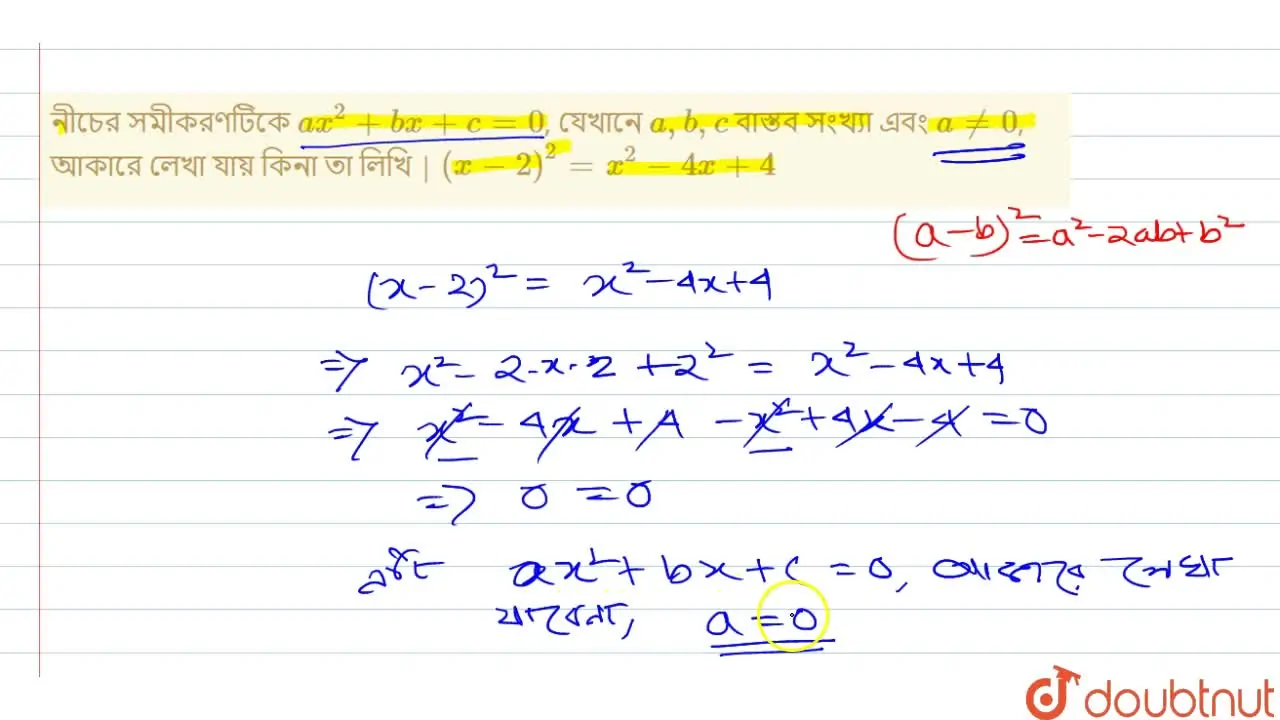 নীচের সমীকরণটিকে ax² + bx + c = 0, যেখানে a, b, c বাস্তব সংখ্যা এবং a ≠ 0,
আকারে লেখা যায় কিনা তা লিখি | (x − 2)² = x² − 4x + 4
(a−b)² = a² − 2ab + b²
(x − 2)² = x² − 4x + 4
⇒ x² − 2·x·2 + 2² = x² − 4x + 4
⇒ x² − 4x + 4 − x² + 4x − 4 = 0
⇒ 0 = 0
ax² + bx + c = 0, আকারে লেখা
যাবেনা, a = 0
doubtnut